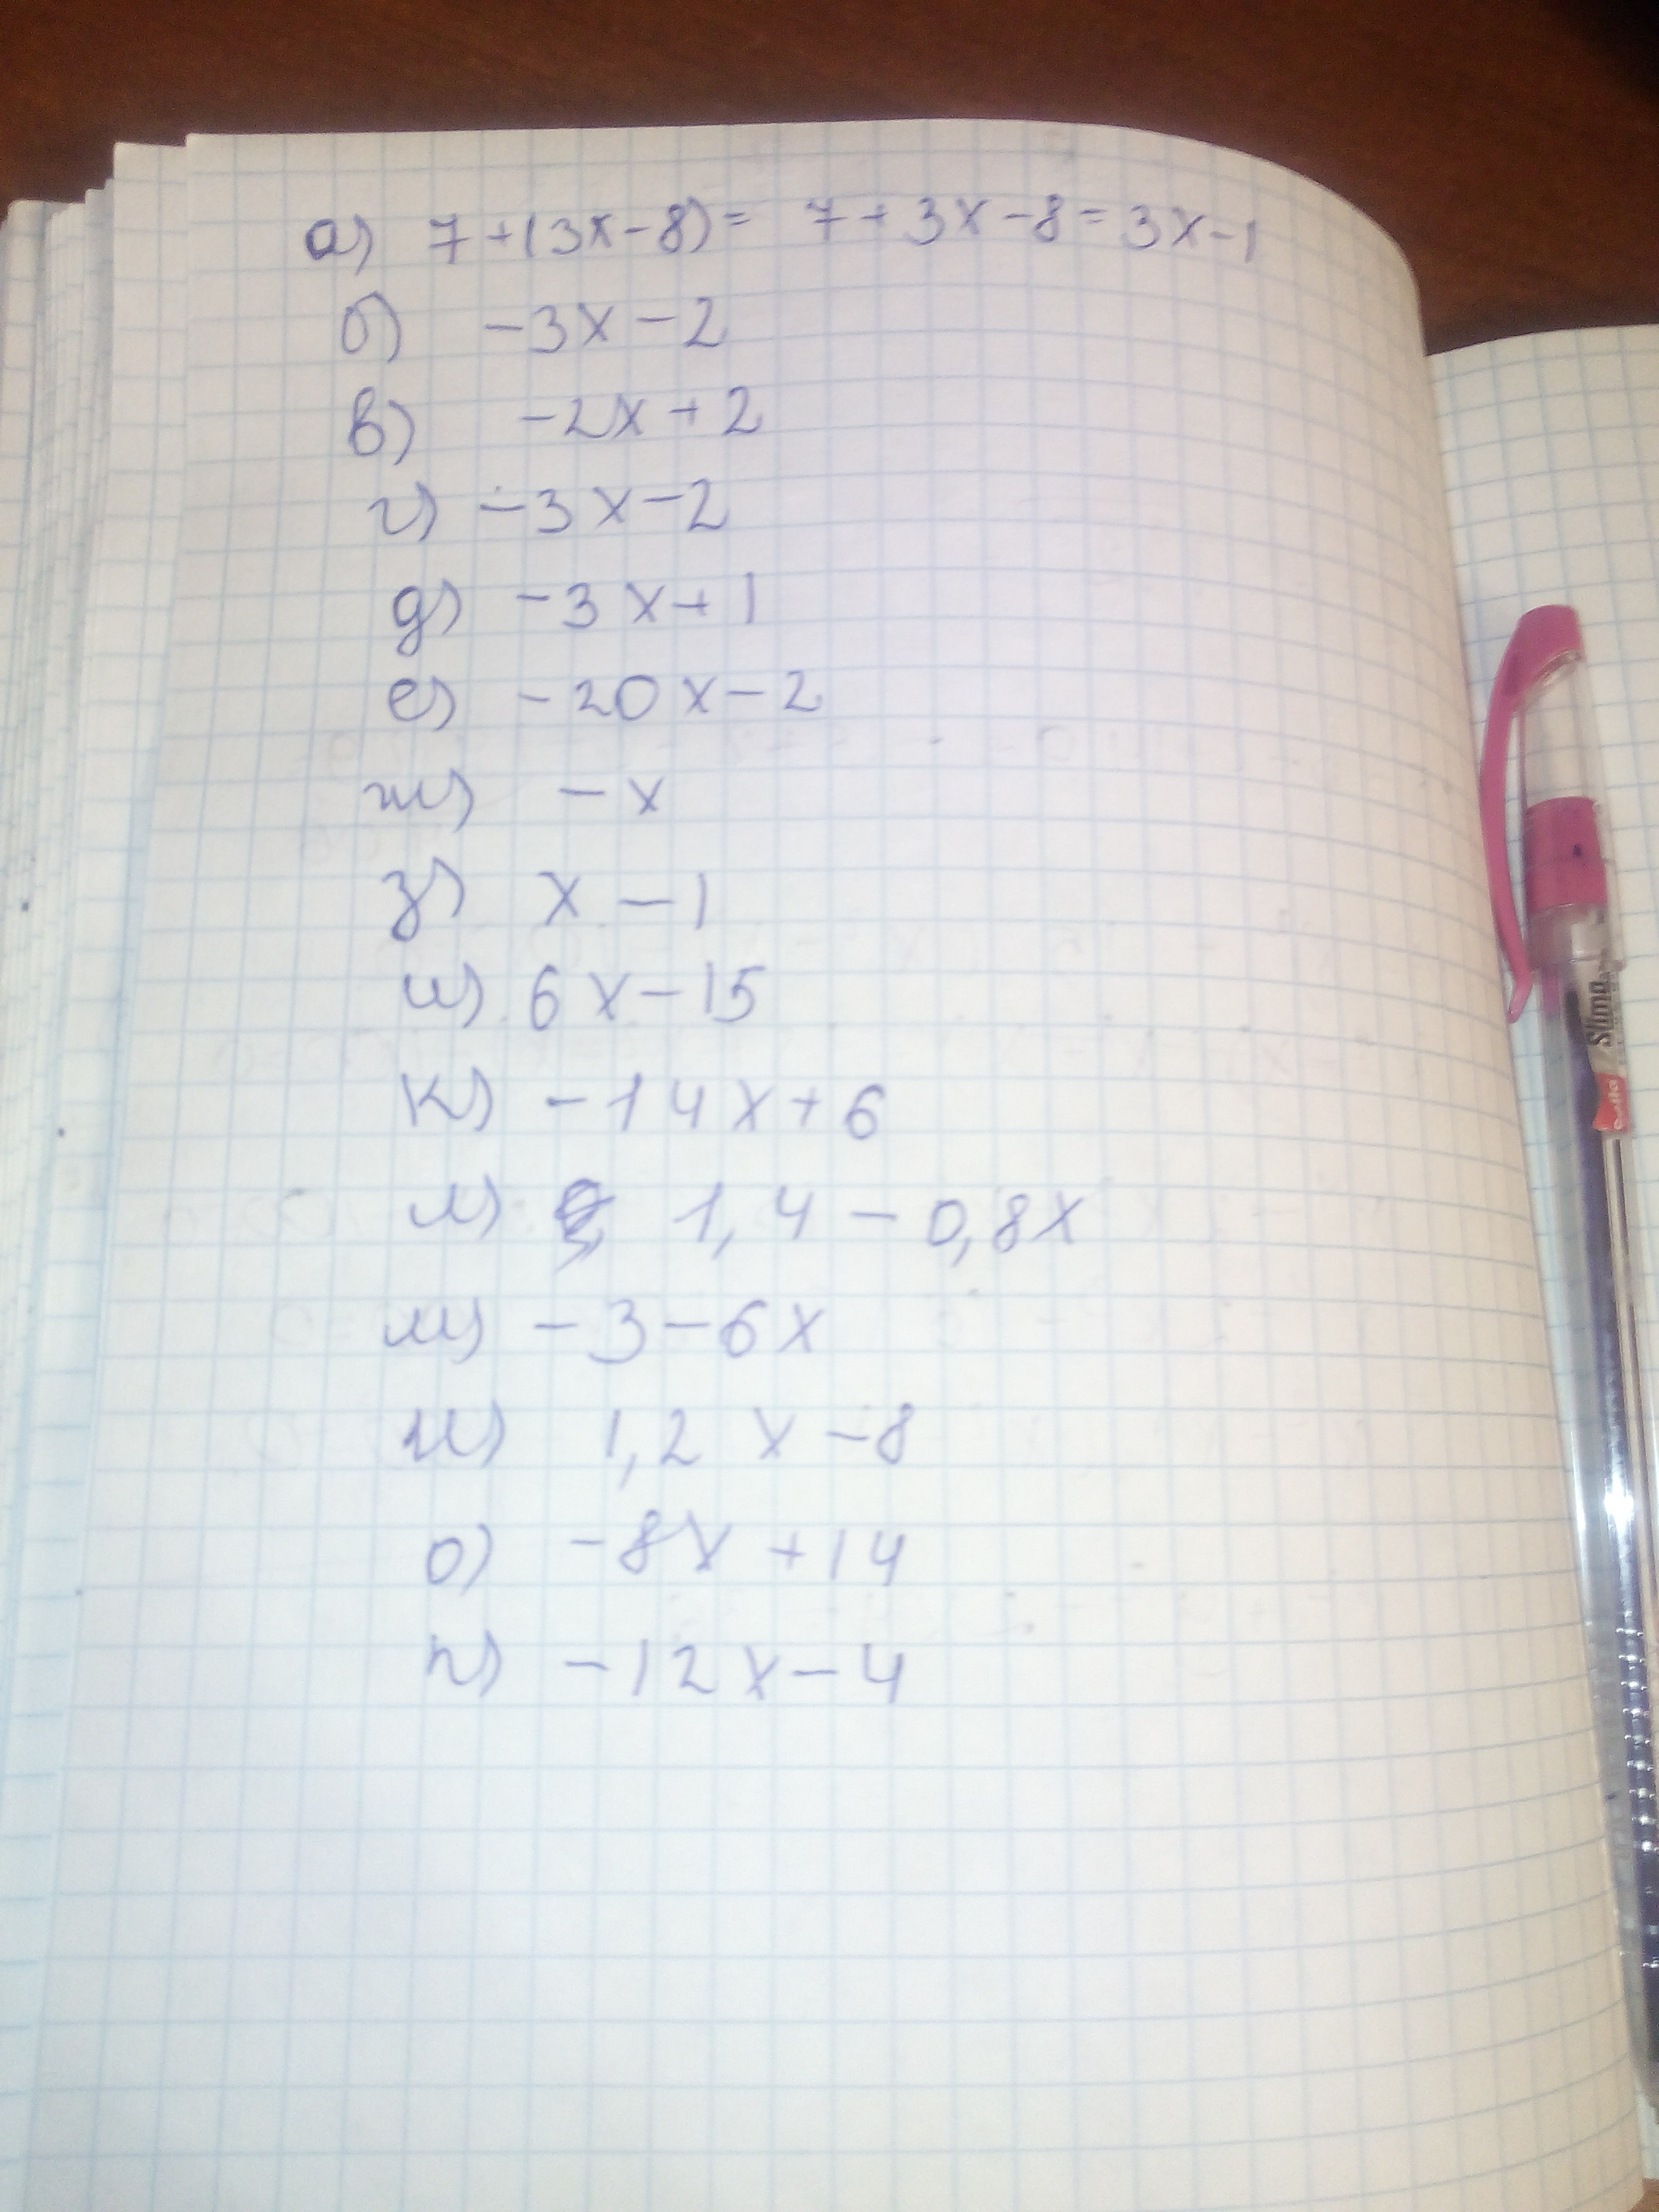 а) 7+(3x-8)= 7+3x-8=3x-1
б) -3x-2
в) -2x+2
г) -3x-2
д) -3x+1
е) -20x-2
ж) -x
з) x-1
и) 6x-15
к) -14x+6
л) 1,4-0,8x
м) -3-6x
н) 1,2x-8
о) -8x+14
п) -12x-4
Slimo